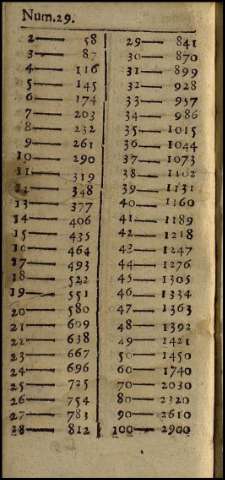 Num.29.
2— 58
3— 87
4— 116
5— 145
6— 174
7— 203
8— 232
9— 261
10— 290
11— 319
12— 348
13— 377
14— 406
15— 435
16— 464
17— 493
18— 522
19— 551
20— 580
21— 609
22— 638
23— 667
24— 696
25— 725
26— 754
27— 783
28— 812
29— 841
30— 870
31— 899
32— 928
33— 957
34— 986
35— 1015
36— 1044
37— 1073
38— 1102
39— 1131
40— 1160
41— 1189
42— 1218
43— 1247
44— 1276
45— 1305
46— 1334
47— 1363
48— 1392
49— 1421
50— 1450
60— 1740
70— 2030
80— 2320
90— 2610
100— 2900